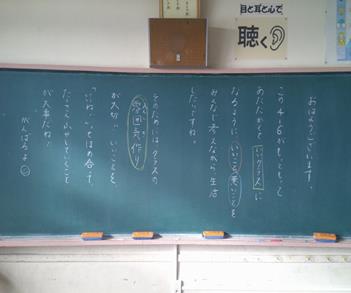 目と耳と心で
聴く
おはようございます。
この4年6がもっともっと
あたたかくていいクラスに
なるように、いいこと悪いことを
みんなで考えながら生活
したいですね。
そのためにはクラスの
雰囲気作り
が大切。いいことを、
「いいね。」ってほめ合って、
たくさんふやしていくこと
が大事だね！
がんばろう